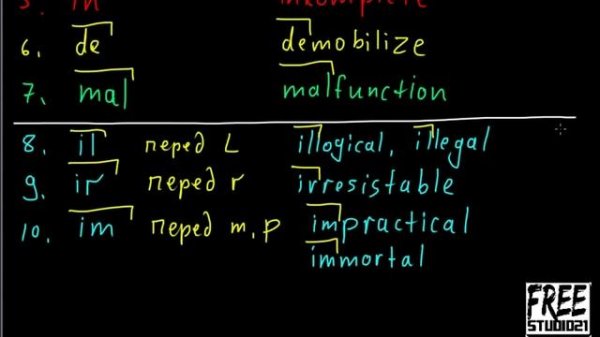 5. in incomplete
6. de demobilize
7. mal malfunction
8. il перед L illogical, illegal
9. ir перед r irresistable
10. im перед m, p impractical
immortal
FREE
STUDIO21